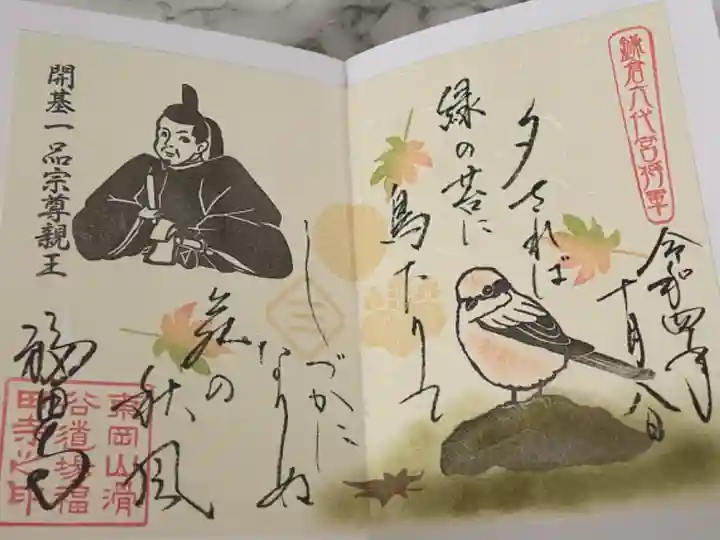 鎌倉六代宮将軍
令和四年
十月八日
夕されば
緑の苔に
鳥たりて
しづかに
なりぬ
苑の
秋風
開基一品宗尊親王
福田寺
東岡山滑
谷道場福
田寺之印
三